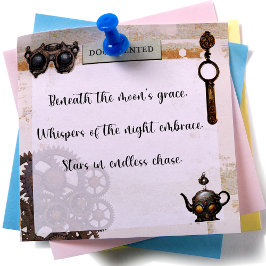 DOCUMENTED
Beneath the moon's grace,
Whispers of the night embrace,
Stars in endless chase.